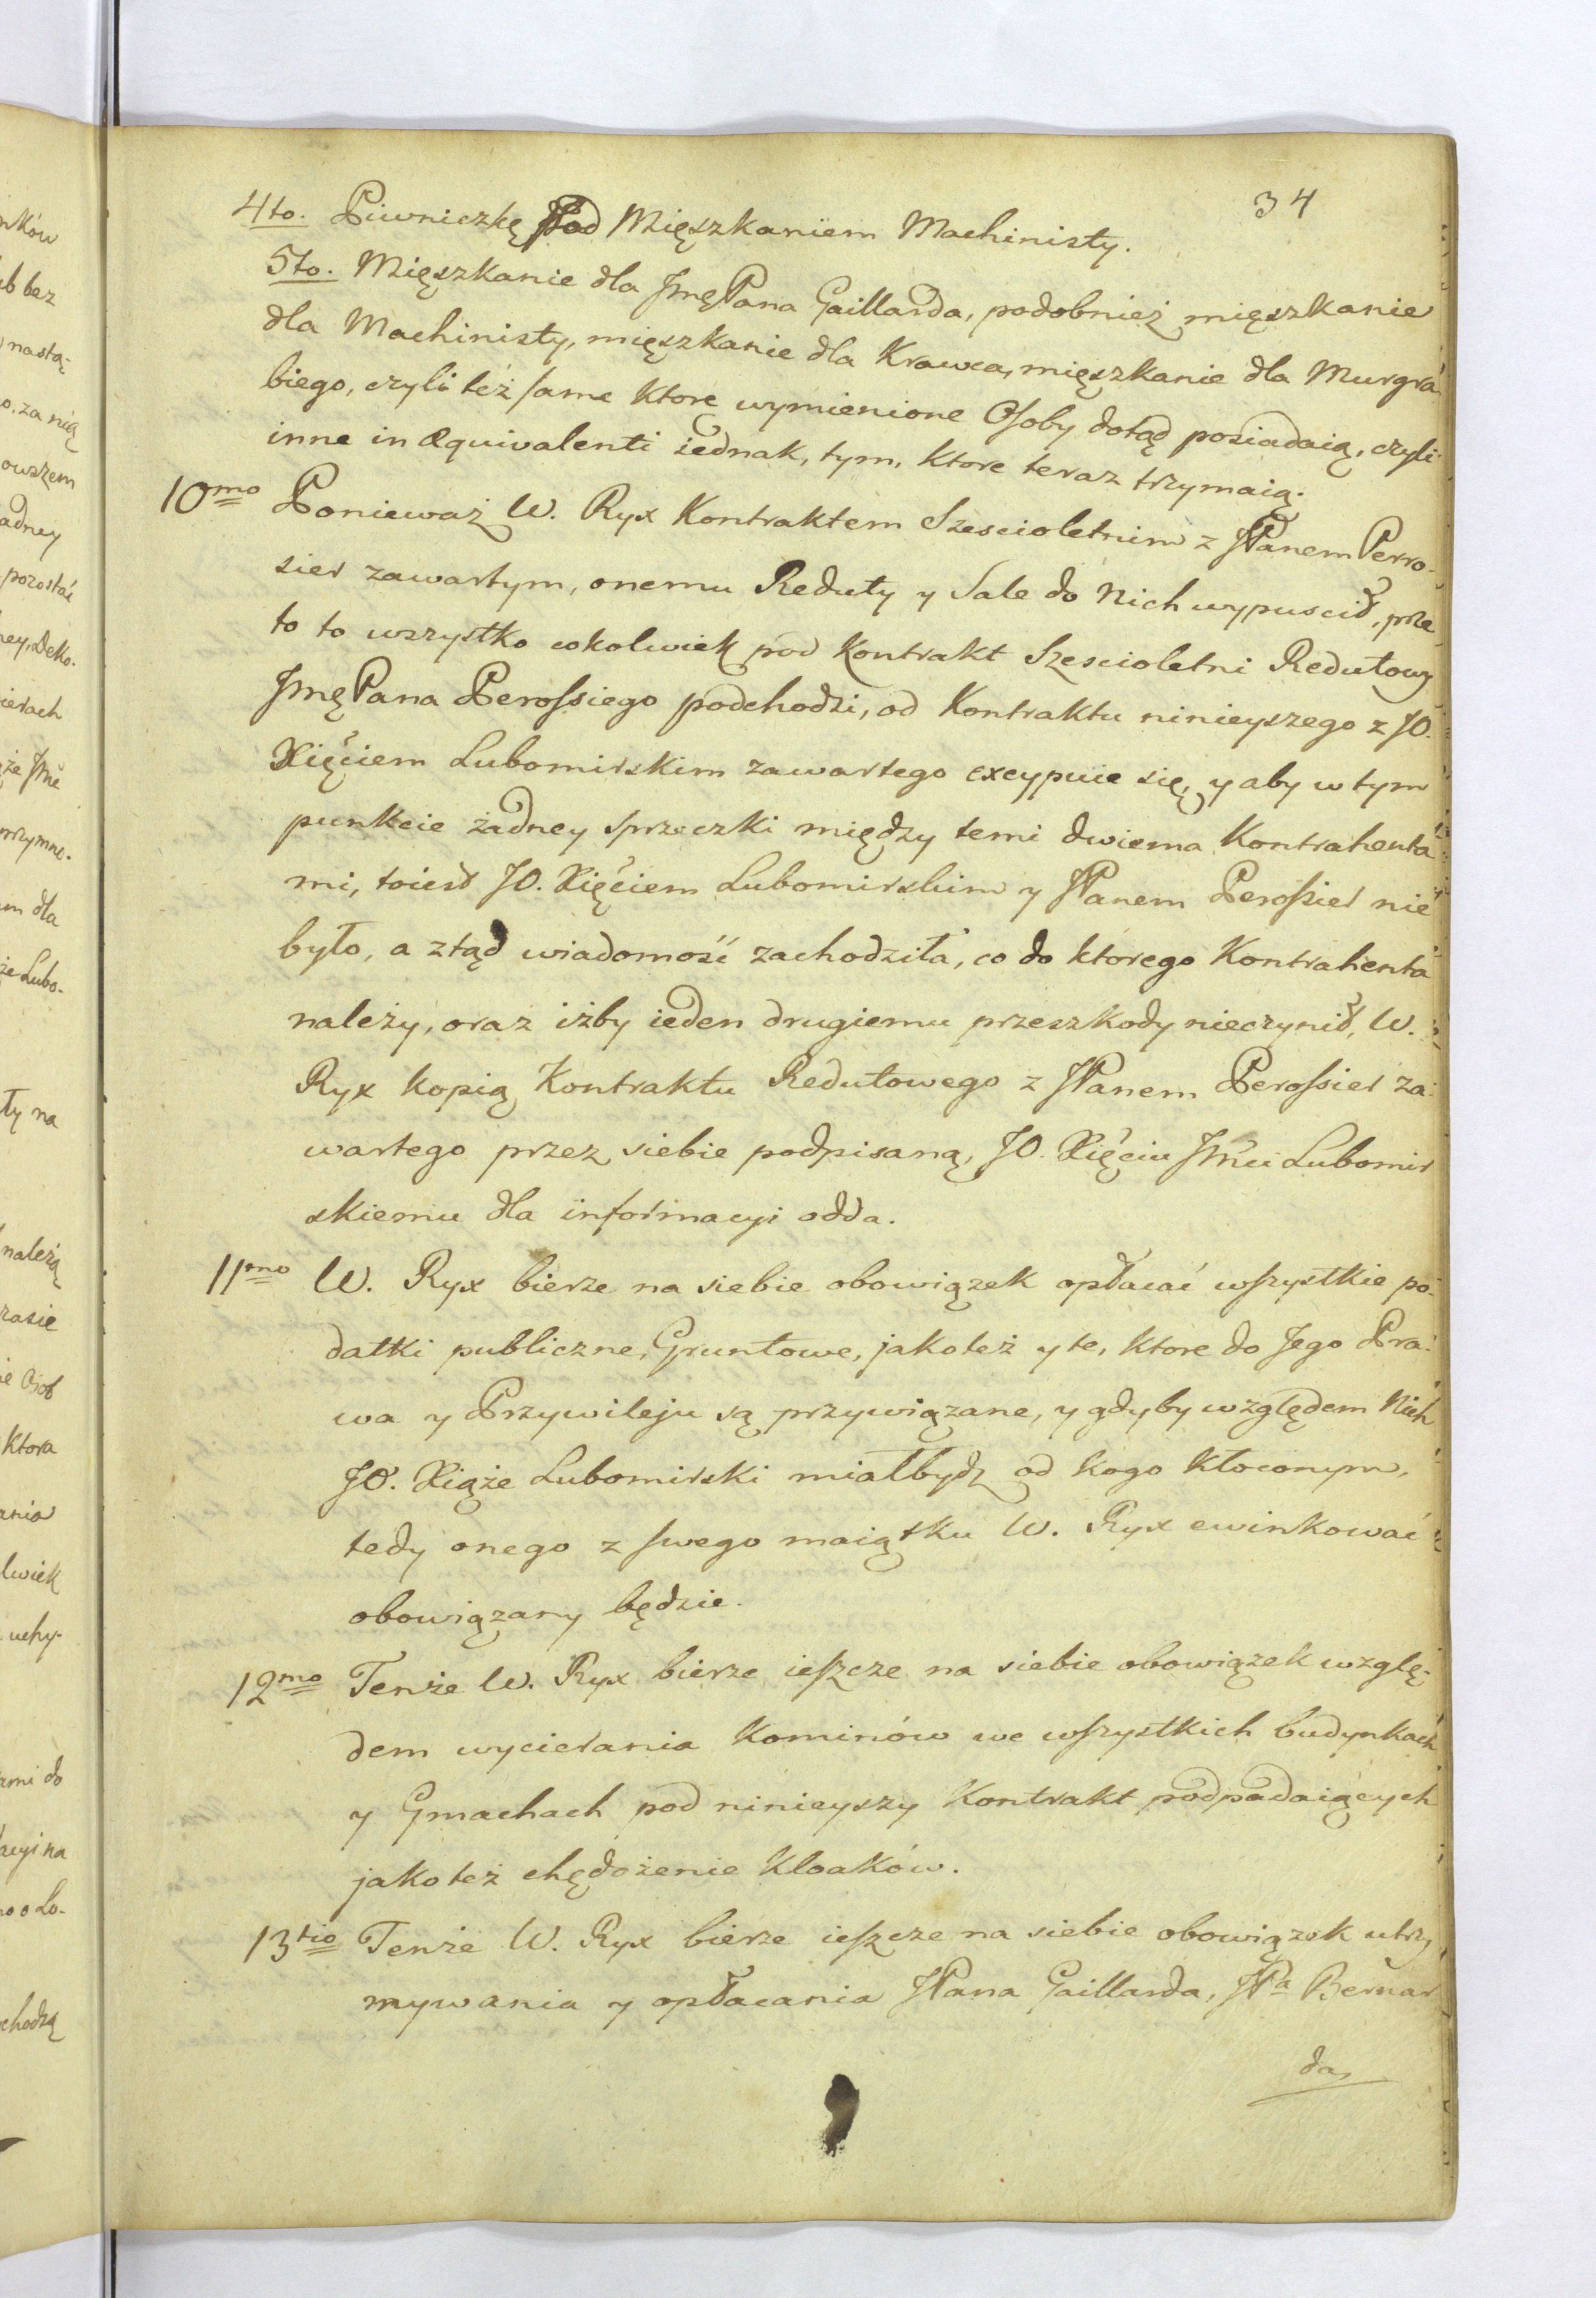 34
4to. Piwniczkę Pod Mięszkaniem Machinisty.
5to. Mięszkanie dla JmęPana Gaillarda, podobnież mięszkanie
dla Machinisty, mięszkanie dla Krawca, mięszkanie dla Murgra-
biego, czyli też same Ktore wymienione Osoby dotąd posiadaią, czyli
inne in Æquivalenti iednak, tym, Ktore teraz trzymaią.
10mo Ponieważ W. Ryx Kontraktem Szescioletnim z JPanem Perro-
sier zawartym, onemu Reduty y Sale do Nich wypuscił, prze
to to wszystko cokolwiek pod Kontrakt Szescioletni Redutowy
JmęPana Perossiego podchodzi, od Kontraktu ninieyszego z JO.
Xięciem Lubomirskim zawartego excypuie się, y aby w tym
punkcie żadney sprzeczki między temi dwiema Kontrahenta
mi, toiesd JO. Xięciem Lubomirskim y JPanem Perossier nie
było, a ztąd wiadomość zachodziła, co do ktorego Kontrahenta
należy, oraz iżby ieden drugiemu przeszkody nieczynił, W.
Ryx kopią Kontraktu Redutowego z JPanem Perossier za-
wartego przez siebie podpisaną, JO. Xięciu Jmci Lubomir
skiemu dla informacyi odda.
11mo W. Ryx bierze na siebie obowiązek opłacać wszystkie po-
datki publiczne, Gruntowe, jakoteż y te, Ktore do Jego Pra-
wa y Przywileju są przywiązane, y gdyby względem Nich
JO. Xiąże Lubomirski miałbydz od kogo Kłoconym,
tedy onego z swego maiątku W. Ryx ewinkować
obowiązany będzie.
12mo Tenże W. Ryx bierze ieszcze na siebie obowiązek wzglę-
dem wycierania Kominów we wszystkich budynkach
y Gmachach pod ninieyszy Kontrakt podpadaiących
jako też chędożenie Kloaków.
13tio Tenże W. Ryx bierze ieszcze na siebie obowiązek utrzy
mywania y opłacania JPana Gaillarda, JPa Bernar
da,